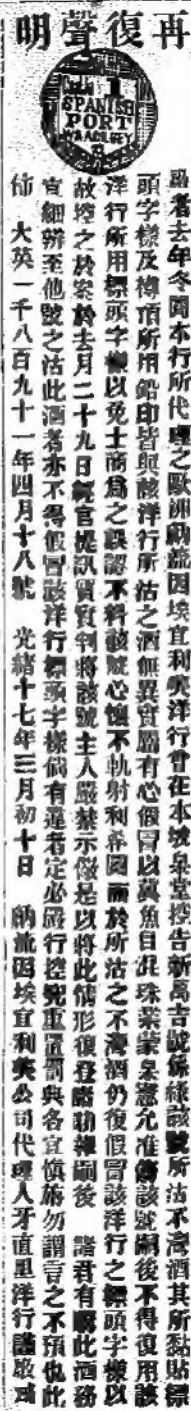 再復聲明
1
SPANISH
PORT
W&A GILBEY
啟者去年冬間本行所代理之歐洲因埃宜利洋行曾在本坡臬堂控告新萬吉號係緣該號所沽不酒其所黏貼標
頭字樣及樽頂所用鉛印皆與該洋行所沽之酒無異實屬有心假冒以冀魚目混珠業蒙臬憲允准飭該號嗣後不得復用該
洋行所用標頭字樣以免士商為之誤認不料該號心懷不軌射利希圖而於所沽之不酒仍復假冒該洋行之標頭字樣以
故控之於案於去月二十九日經官提訊質實判將該號主人嚴禁示儆是以將此情形復登叻報嗣後 諸君有此酒務
宜細辨至他號之沽此酒者亦不得假冒該洋行標頭字樣倘有違者定必嚴行控究重罰各宜慎旃勿謂言之不預也此
佈 大英一千八百九十一年四月十八號 光緒十七年三月初十日 因埃宜利公司代理人牙直里洋行謹啟